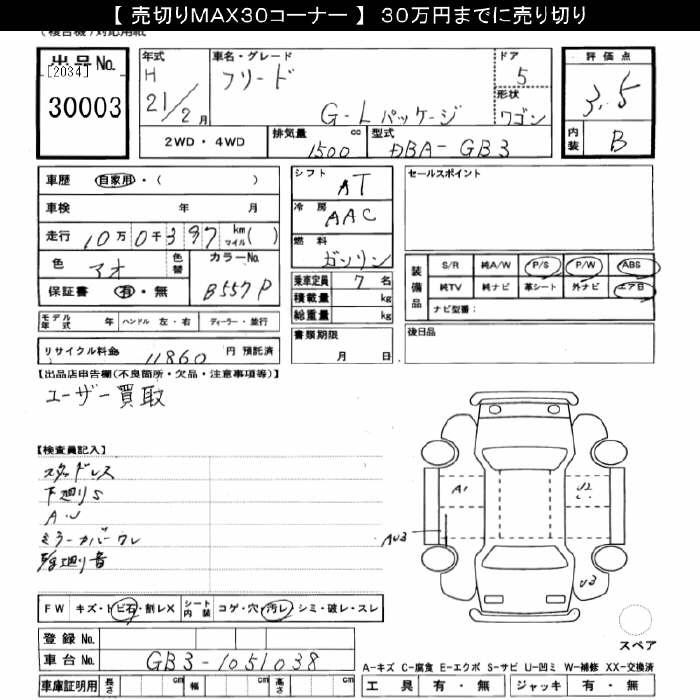 【 売切りMAX30コーナー 】 30万円までに売り切り
出品No.
[2034]
30003
年式 H 21/2月
車名・グレード フリード G-Lパッケージ
ドア 5
形状 ワゴン
評価点 3.5
内装 B
2WD・4WD
排気量 1500 cc
型式 DBA-GB3
車歴 自家用・( )
車検 年 月
走行 10万0千397 km マイル( )
色 アオ 色替
カラーNo. B557P
保証書 有・無
シフト AT
冷房 AAC
燃料 ガソリン
乗車定員 7 名
積載量 kg
総重量 kg
書類期限
月 日
セールスポイント
装備品
S/R 純A/W P/S P/W ABS
純TV 純ナビ 革シート 外ナビ エアB
ナビ型番:
後日品
モデル年式 年 ハンドル 左・右 ディーラー・並行
リサイクル料金 11860 円 預託済
【出品店申告欄(不良箇所・欠品・注意事項等)】
ユーザー買取
【検査員記入】
スタッドレス
下廻りS
A・U
ミラーカバーワレ
A1
U2
AU3
U3
FW キズ・トビ石・割レX シート内装 コゲ・穴・汚レ・シミ・破レ・スレ
登録No.
車台No. GB3-1051038
スペア
A-キズ C-腐食 E-エクボ S-サビ U-凹ミ W-補修 XX-交換済
車庫証明用 長さ cm 幅 cm 高さ cm
工具 有・無 ジャッキ 有・無